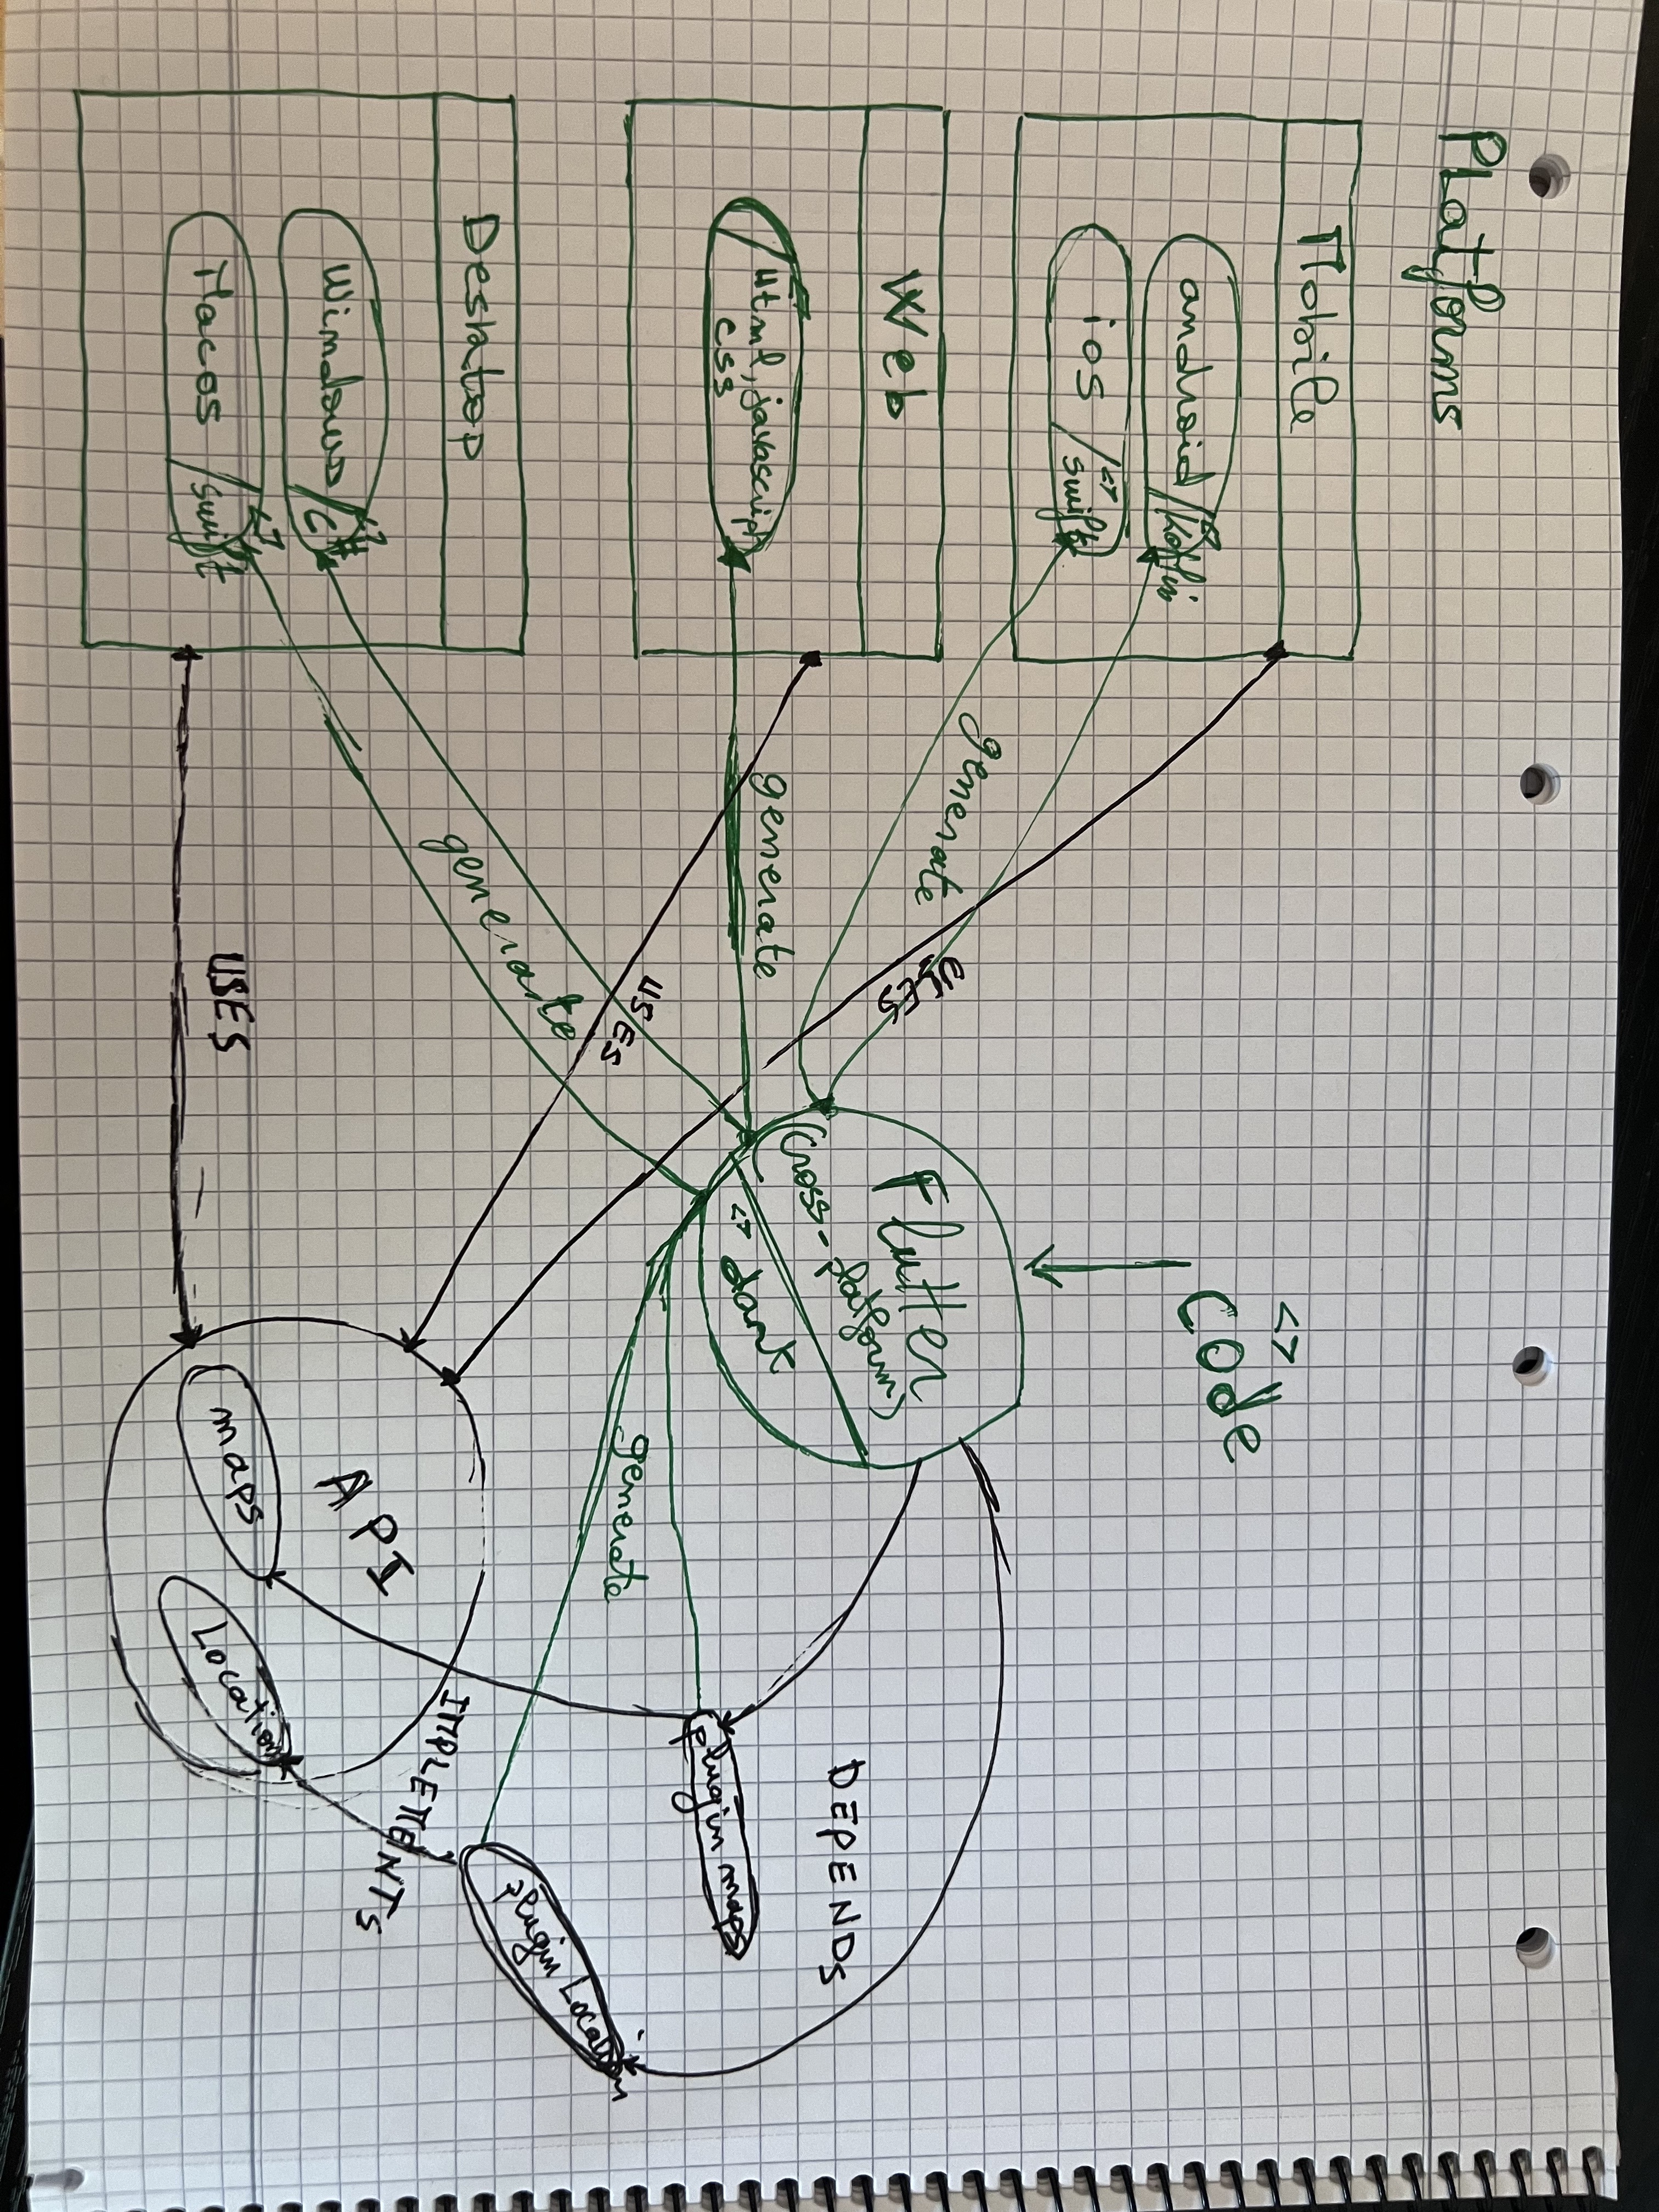 PLatforms
Mobile
android / <> Kotlin
iOS / <> swift
Web
Html, javascript
css
Desktop
Windows / <> C#
Macos / <> swift
generate
generate
generate
USES
USES
USES
<>
Code
Flutter
(cross-platform)
<> dart
generate
DEPENDS
plugin maps
plugin Location
IMPLEMENTS
API
maps
Location